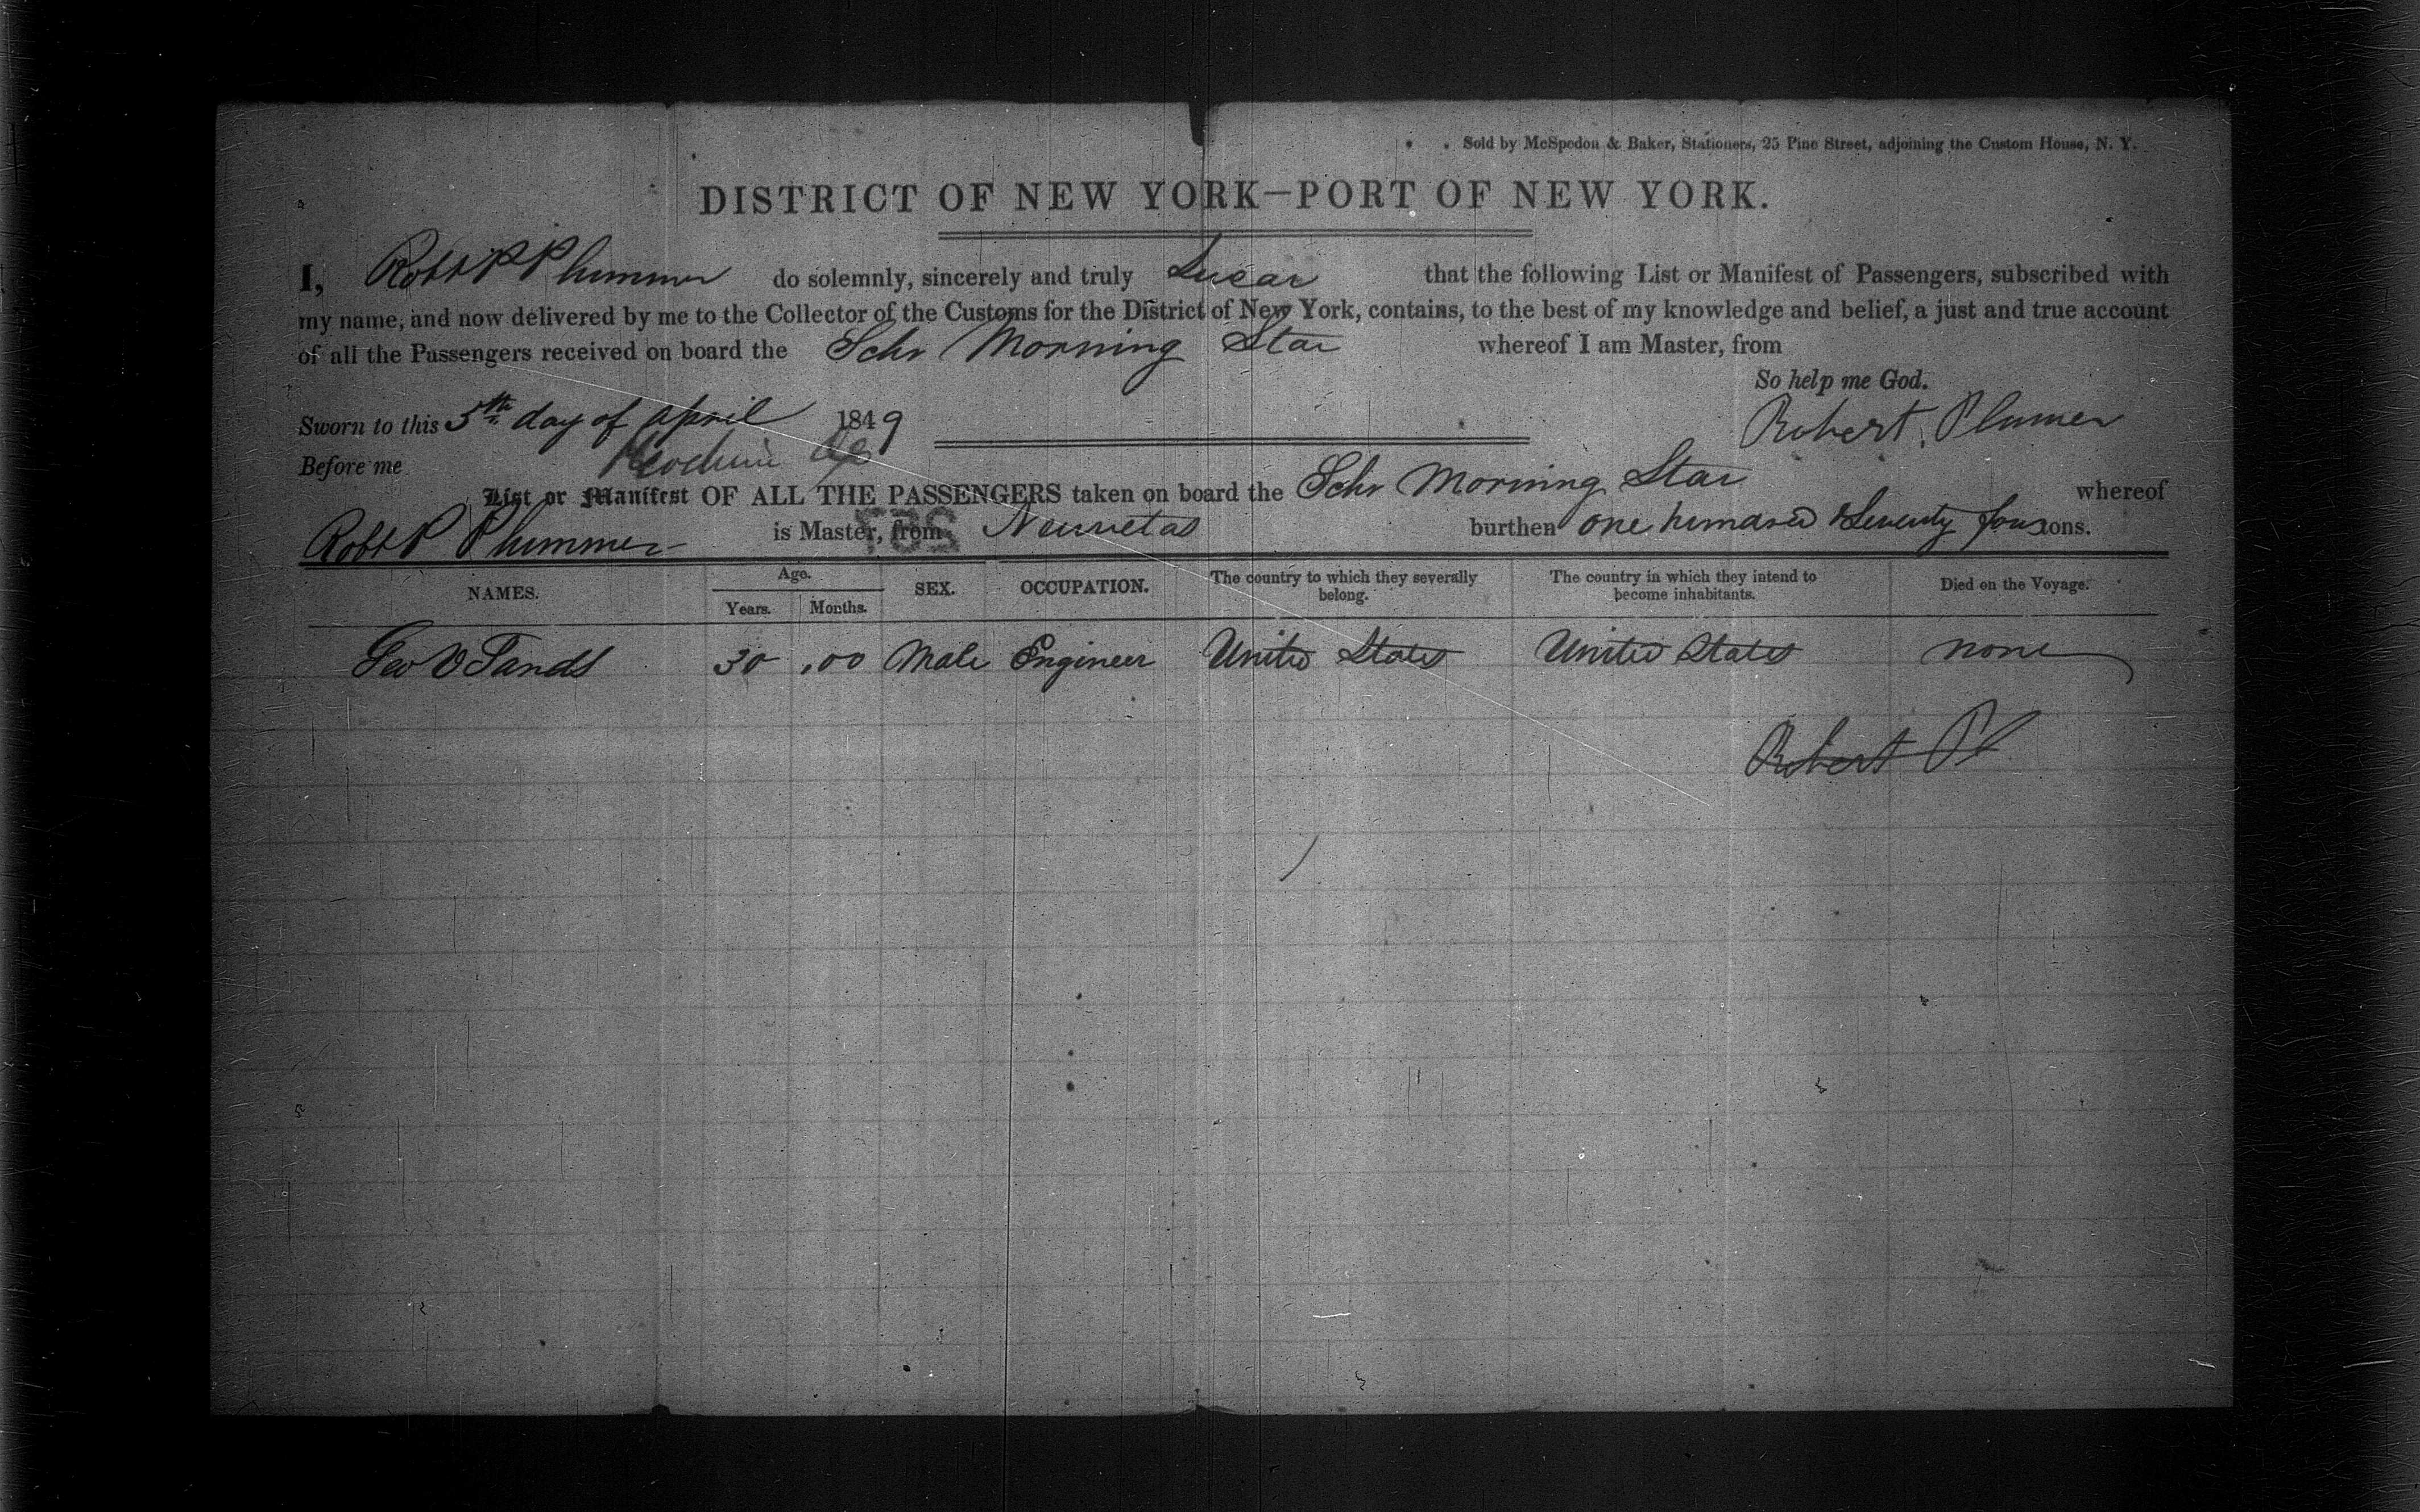 Sold by McSpedon & Baker, Stationers, 25 Pine Street, adjoining the Custom House, N. Y.
DISTRICT OF NEW YORK—PORT OF NEW YORK.
I, Robt P Plummer do solemnly, sincerely and truly Swear that the following List or Manifest of Passengers, subscribed with
my name, and now delivered by me to the Collector of the Customs for the District of New York, contains, to the best of my knowledge and belief, a just and true account
of all the Passengers received on board the Schr Morning Star whereof I am Master, from
So help me God.
Sworn to this 5th day of April 1849 Robert Plumer
Before me
List or Manifest OF ALL THE PASSENGERS taken on board the Schr Morning Star whereof
Robt P Plummer is Master, from Neuvetas burthen one hundred & Seventy four tons.
NAMES. Age. Years. Months. SEX. OCCUPATION. The country to which they severally belong. The country in which they intend to become inhabitants. Died on the Voyage.
Geo V Sands 30 .00 Male Engineer United States United States none
Robert Pl